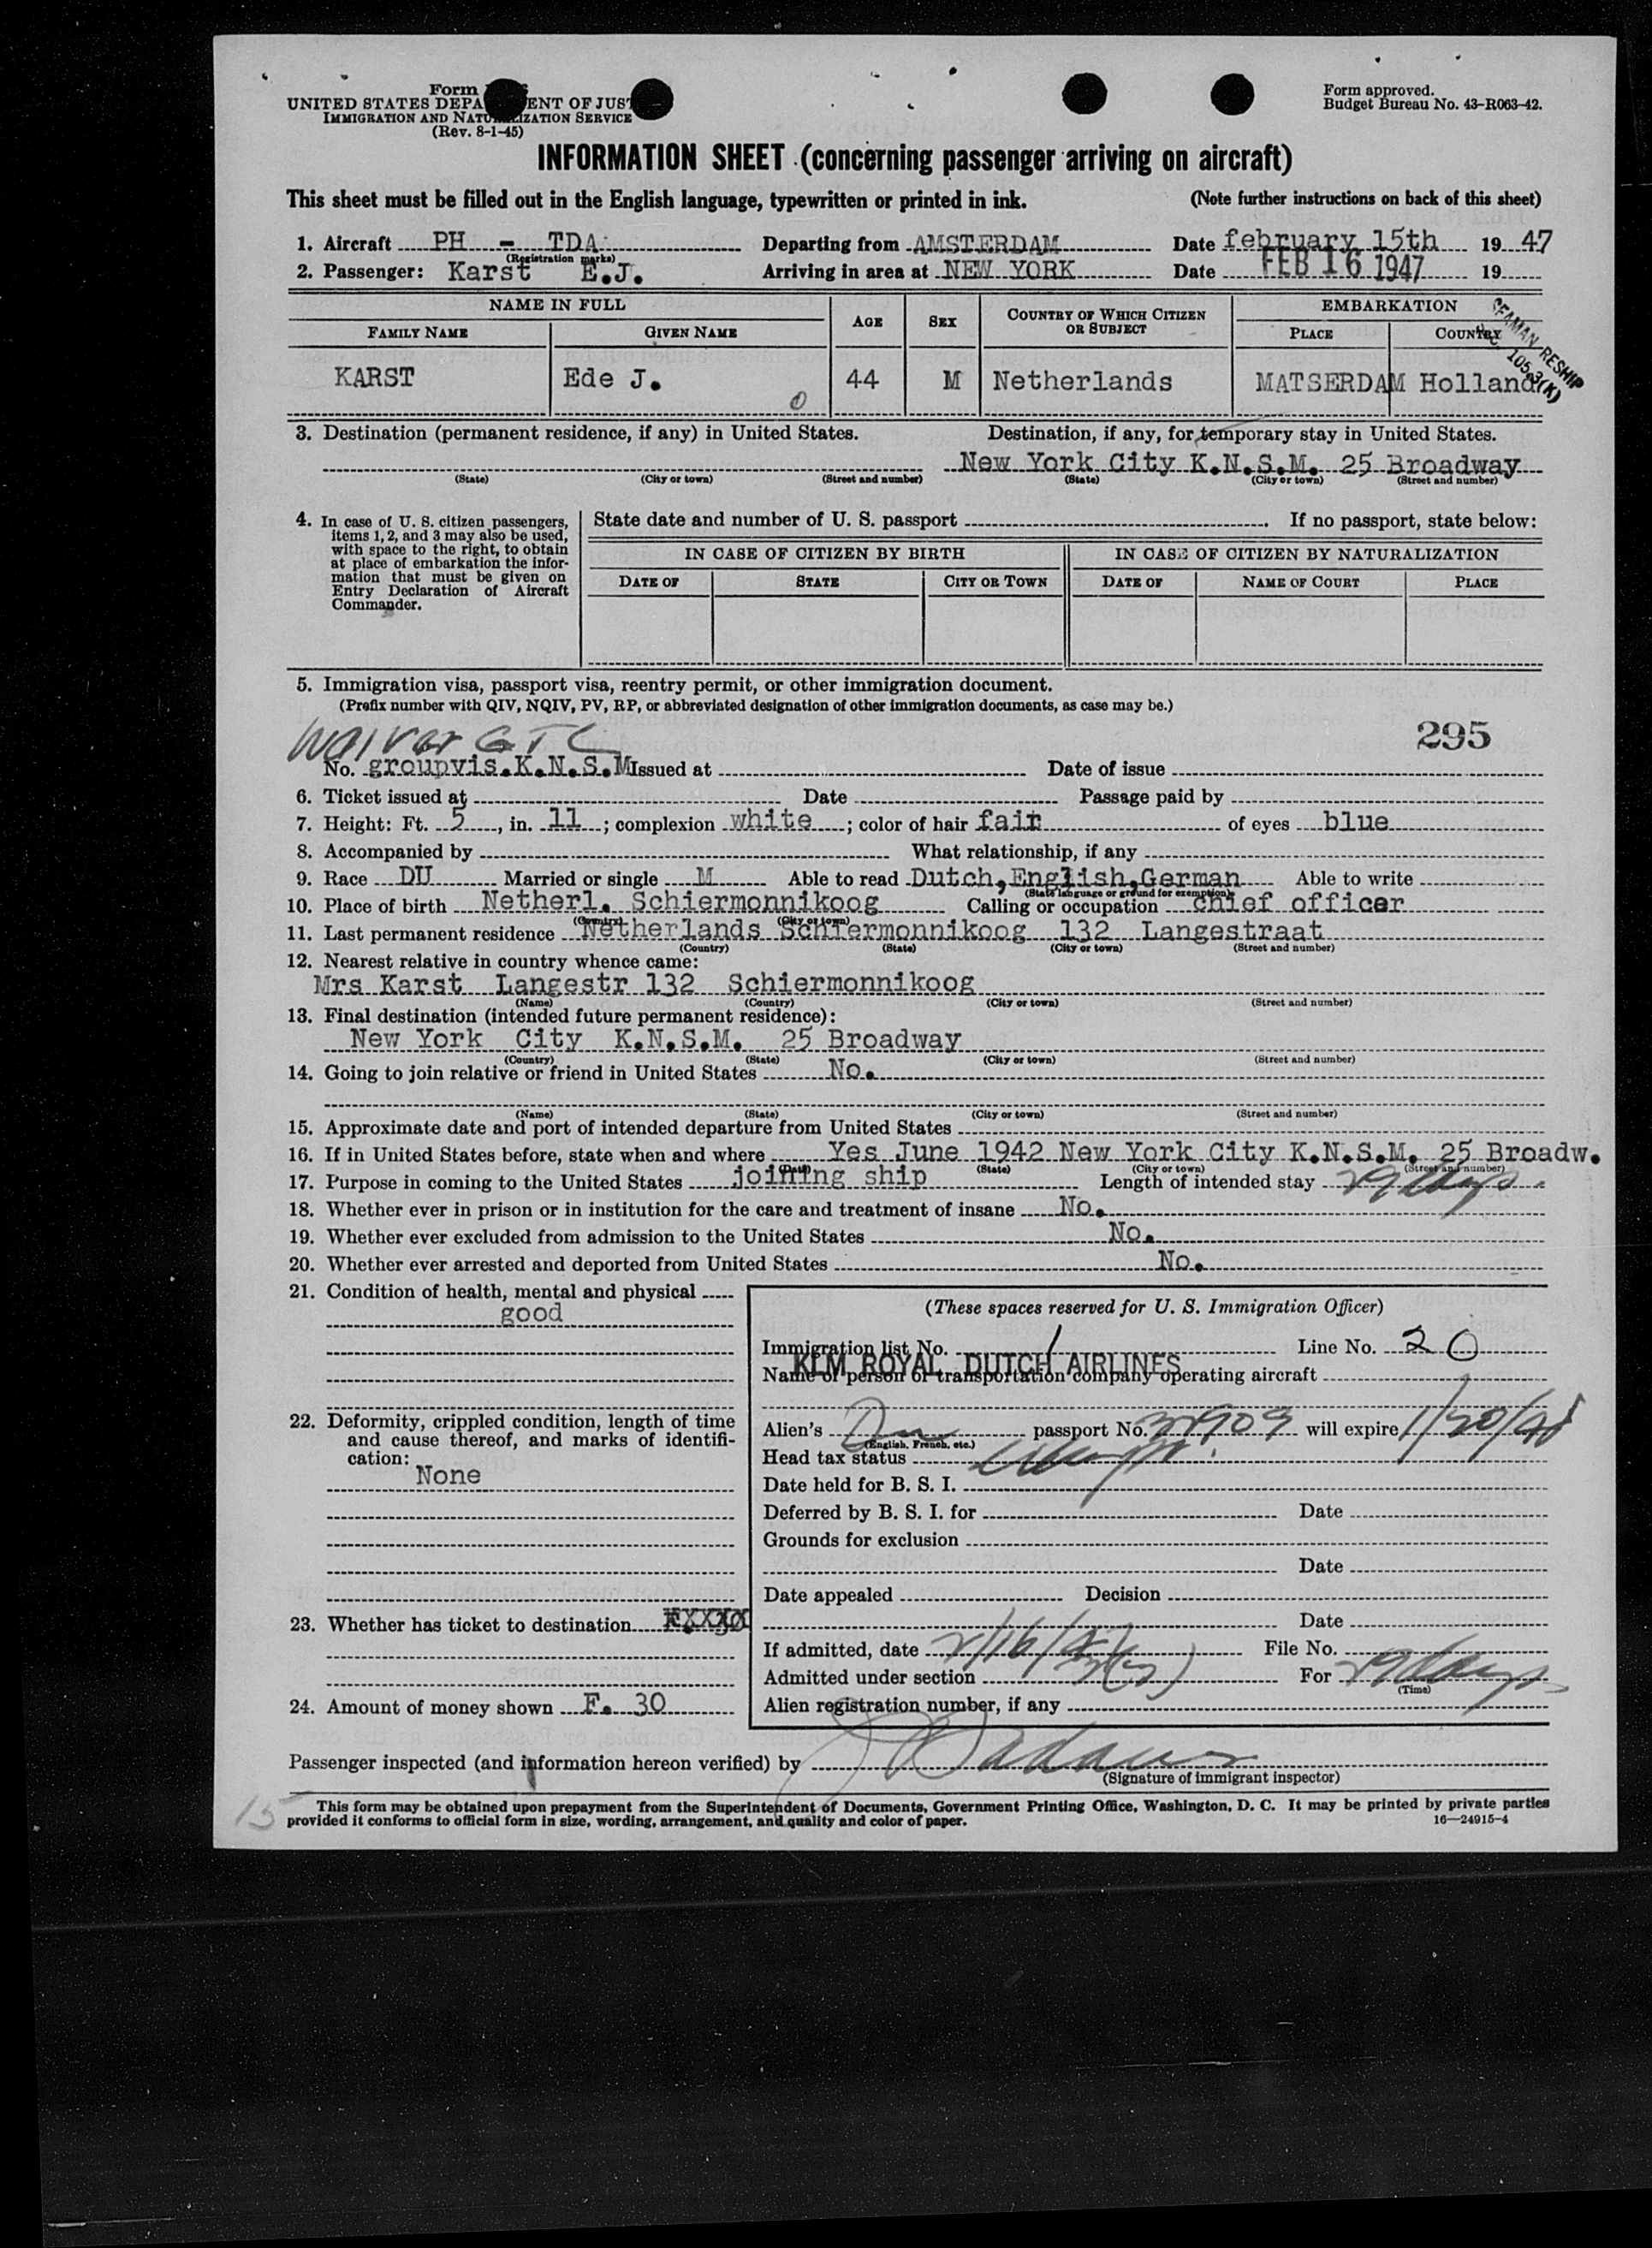 Form
UNITED STATES DEPA ENT OF JUST
IMMIGRATION AND NATU IZATION SERVICE
(Rev. 8-1-45)
Form approved.
Budget Bureau No. 43-R063-42.
INFORMATION SHEET (concerning passenger arriving on aircraft)
This sheet must be filled out in the English language, typewritten or printed in ink. (Note further instructions on back of this sheet)
1. Aircraft PH - TDA Departing from AMSTERDAM Date february 15th 19 47
(Registration marks)
2. Passenger: Karst E.J. Arriving in area at NEW YORK Date FEB 16 1947 19
NAME IN FULL AGE SEX COUNTRY OF WHICH CITIZEN OR SUBJECT EMBARKATION
FAMILY NAME GIVEN NAME PLACE COUNTRY
SEAMAN RESHIP
105.3(K)
KARST Ede J. 44 M Netherlands MATSERDAM Holland
0
3. Destination (permanent residence, if any) in United States. Destination, if any, for temporary stay in United States.
New York City K.N.S.M. 25 Broadway
(State) (City or town) (Street and number) (State) (City or town) (Street and number)
4. In case of U. S. citizen passengers, items 1, 2, and 3 may also be used, with space to the right, to obtain at place of embarkation the information that must be given on Entry Declaration of Aircraft Commander.
State date and number of U. S. passport . If no passport, state below:
IN CASE OF CITIZEN BY BIRTH IN CASE OF CITIZEN BY NATURALIZATION
DATE OF STATE CITY OR TOWN DATE OF NAME OF COURT PLACE
5. Immigration visa, passport visa, reentry permit, or other immigration document.
(Prefix number with QIV, NQIV, PV, RP, or abbreviated designation of other immigration documents, as case may be.)
295
Waiver GTC
No. groupvis.K.N.S.M Issued at Date of issue
6. Ticket issued at Date Passage paid by
7. Height: Ft. 5, in. 11; complexion white; color of hair fair of eyes blue
8. Accompanied by What relationship, if any
9. Race DU Married or single M Able to read Dutch,English,German Able to write
(State language or ground for exemption)
10. Place of birth Netherl. Schiermonnikoog Calling or occupation chief officer
(Country) (City or town)
11. Last permanent residence Netherlands Schiermonnikoog 132 Langestraat
(Country) (State) (City or town) (Street and number)
12. Nearest relative in country whence came:
Mrs Karst Langestr 132 Schiermonnikoog
(Name) (Country) (City or town) (Street and number)
13. Final destination (intended future permanent residence):
New York City K.N.S.M. 25 Broadway
(Country) (State) (City or town) (Street and number)
14. Going to join relative or friend in United States No.
(Name) (State) (City or town) (Street and number)
15. Approximate date and port of intended departure from United States
16. If in United States before, state when and where Yes June 1942 New York City K.N.S.M. 25 Broadw.
(Date) (State) (City or town) (Street and number)
17. Purpose in coming to the United States joining ship Length of intended stay 29 days.
18. Whether ever in prison or in institution for the care and treatment of insane No.
19. Whether ever excluded from admission to the United States No.
20. Whether ever arrested and deported from United States No.
21. Condition of health, mental and physical
good
22. Deformity, crippled condition, length of time and cause thereof, and marks of identification:
None
23. Whether has ticket to destination
24. Amount of money shown F. 30
(These spaces reserved for U. S. Immigration Officer)
Immigration list No. 1 Line No. 20
KLM ROYAL DUTCH AIRLINES
Name of person or transportation company operating aircraft
Alien's Du passport No. will expire 1/30/48
(English, French, etc.)
Head tax status
Date held for B. S. I.
Deferred by B. S. I. for Date
Grounds for exclusion
Date
Date appealed Decision
Date
If admitted, date 2/16/47 File No.
Admitted under section 3(5) For 29 days
(Time)
Alien registration number, if any
Passenger inspected (and information hereon verified) by
(Signature of immigrant inspector)
15
This form may be obtained upon prepayment from the Superintendent of Documents, Government Printing Office, Washington, D. C. It may be printed by private parties
provided it conforms to official form in size, wording, arrangement, and quality and color of paper. 16—24915-4